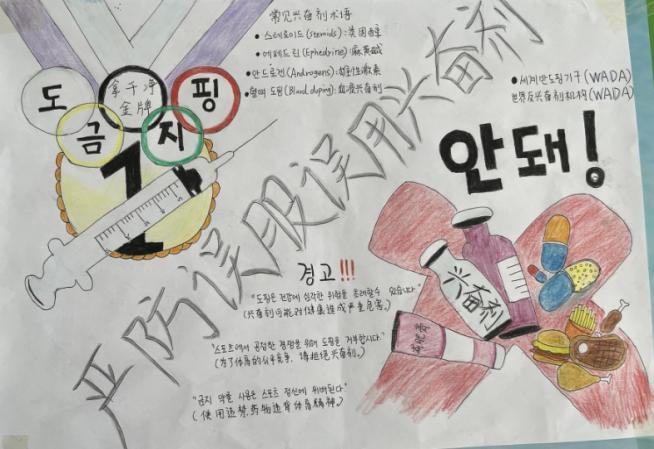 常见兴奋剂术语
스테로이드(Steroids):类固醇
에페드린(Ephedrine):麻黄碱
안드로겐(Androgens):雄性激素
혈액 도핑(Blood doping):血液兴奋剂
세계 안도핑기구(WADA)
世界反兴奋剂机构(WADA)
도 핑
금 지
拿干净
金牌
1
안돼!
严防误服误用兴奋剂
兴奋剂
경고!!!
"도핑은 건강에 심각한 위험을 초래할수 있습니다."
(兴奋剂可能对健康造成严重危害。)
"스포츠에서 공정한 경쟁을 위해 도핑을 거부합시다."
(为了体育的公平竞争,请拒绝兴奋剂。)
"금지 약물 사용은 스포츠 정신에 위배된다"
(使用违禁药物违背体育精神。)